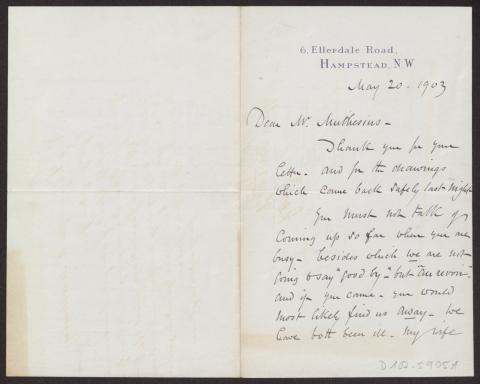 6, Ellerdale Road,
HAMPSTEAD, N.W
May 20. 1903
Dear Mr. Muthesius -
Thank you for your
letter - and for the drawings
which came back safely last night
You must not talk of
coming up so far when you are
busy - besides which we are not
going to say "good by" - but "au revoir" -
and if you came - you would
most likely find us away - We
have both been ill - My wife
D 102-5905A